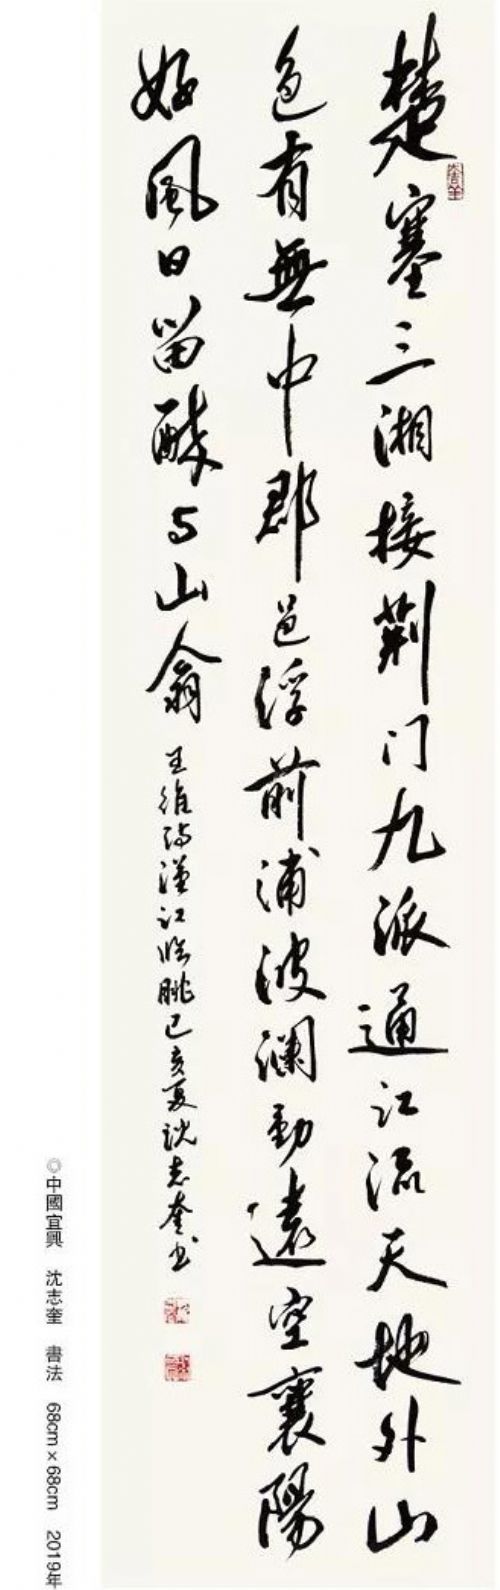 楚塞三湘接荆门九派通江流天地外山
色有無中郡邑浮前浦波瀾動遠空襄陽
好風日留醉与山翁
王維詩漢江臨眺己亥夏沈志奎书
◎中國宜興 沈志奎 書法 68cm×68cm 2019年